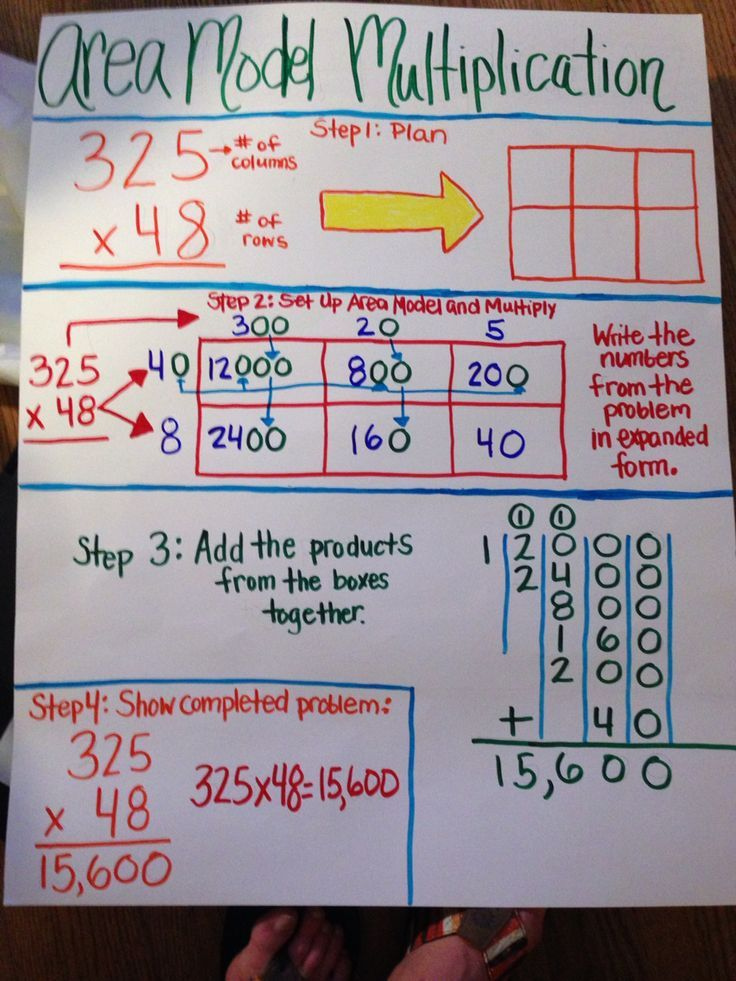 Area Model Multiplication
Step 1: Plan
325 → # of
columns
x 48 # of
rows
Step 2: Set Up Area Model and Multiply
300 20 5
325
x 48
40 12000 800 200
8 2400 160 40
Write the
numbers
from the
problem
in expanded
form.
Step 3: Add the products
from the boxes
together.
1 1
12000
2400
800
160
200
+ 40
15,600
Step 4: Show completed problem:
325
x 48
15,600
325x48=15,600